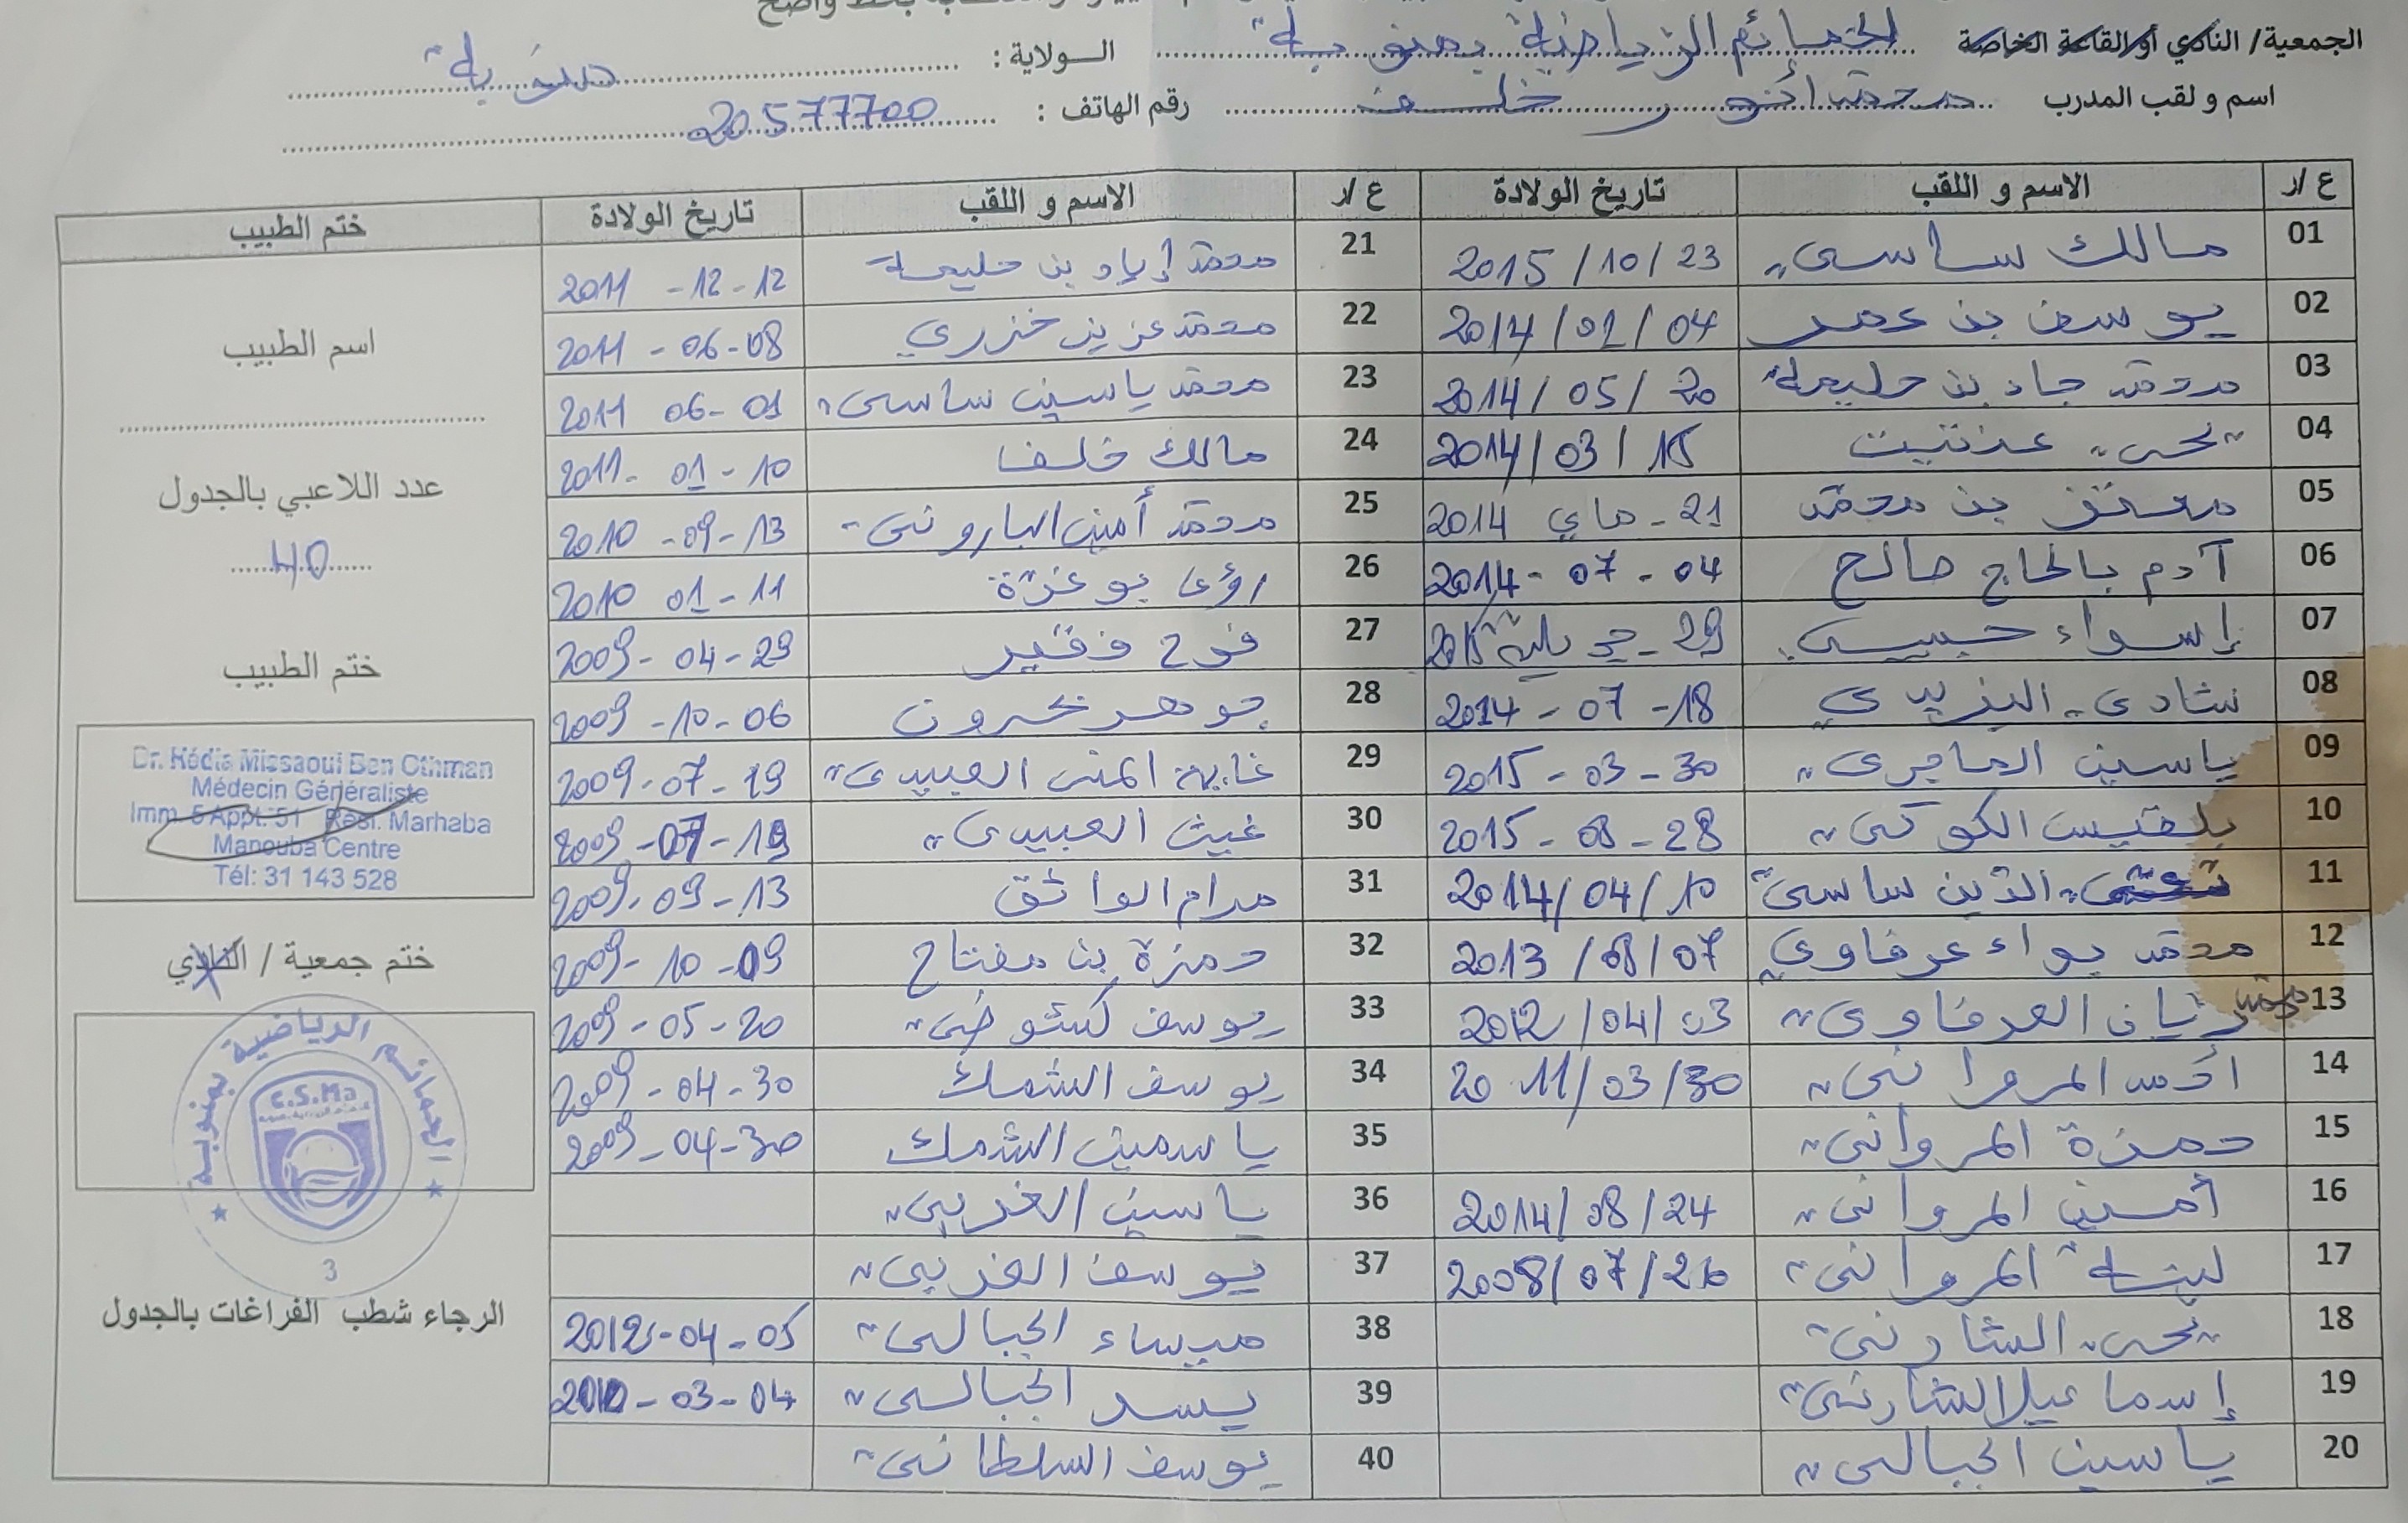 الجمعية/ النادي أو القاعة الخاصة الحمائم الرياضية بمنوبة الـولاية : منوبة
اسم و لقب المدرب محمد أنور خلف رقم الهاتف : 20577700
ع /ر الاسم و اللقب تاريخ الولادة ع /ر الاسم و اللقب تاريخ الولادة ختم الطبيب
01 مالك ساسي 2015/10/23 21 محمد إياد بن حليمة 2011 -12-12
02 يوسف بن عمر 2014/01/04 22 محمد عزيز خزري 2011 -06-08
03 محمد جاد بن حليمة 2014/05/20 23 محمد ياسين ساسي 2011 06-01
04 يحي 2014/03/15 24 مالك خلف 2011- 01-10
05 معتز بن محمد 21 - ماي 2014 25 محمد أمين الباروني 2010 -09-13
06 آدم بالحاج صالح 2014- 07 - 04 26 رؤى بوغزة 2010 01-11
07 إسراء حبيبي 29 - جويلية 27 فرح فقير 2009- 04-29
08 شادي اليزيدي 2014 - 07 -18 28 جوهر بحرون 2009 -10-06
09 ياسين الماجري 2015 - 03 - 30 29 غاية المنى العبيدي 2009-07-19
10 بلقيس الكوكي 2015 - 08 - 28 30 غيث العبيدي 2009 -07-19
11 الدين ساسي 2014/04/10 31 مرام الواثق 2009- 09-13
12 محمد براء عرفاوي 2013/08/07 32 حمزة بن مفتاح 2009- 10-09
13 محمد ريان العرفاوي 2012/04/03 33 يوسف 2009 -05-20
14 المرواني 2011/03/30 34 يوسف الشمك 2009 -04-30
15 حمزة المرواني 35 ياسمين الشمك 2009 -04-30
16 أمين المرواني 2014/08/24 36 ياسين الغربي
17 لينة المرواني 2008/07/26 37 يوسف الغربي
18 يحي الشارني 38 ميساء الجبالي 2012-04-05
19 إسماعيل الشارني 39 يسر الجبالي 2010-03-04
20 ياسين الجبالي 40 يوسف السلطاني
اسم الطبيب
عدد اللاعبي بالجدول
40
ختم الطبيب
Dr. Hédia Missaoui Ben Othman
Médecin Généraliste
Imm. 5 Appt. 51 Rési. Marhaba
Manouba Centre
Tél: 31 143 528
ختم جمعية / النادي
الحمائم الرياضية بمنوبة
C.S.Ma
3
الرجاء شطب الفراغات بالجدول